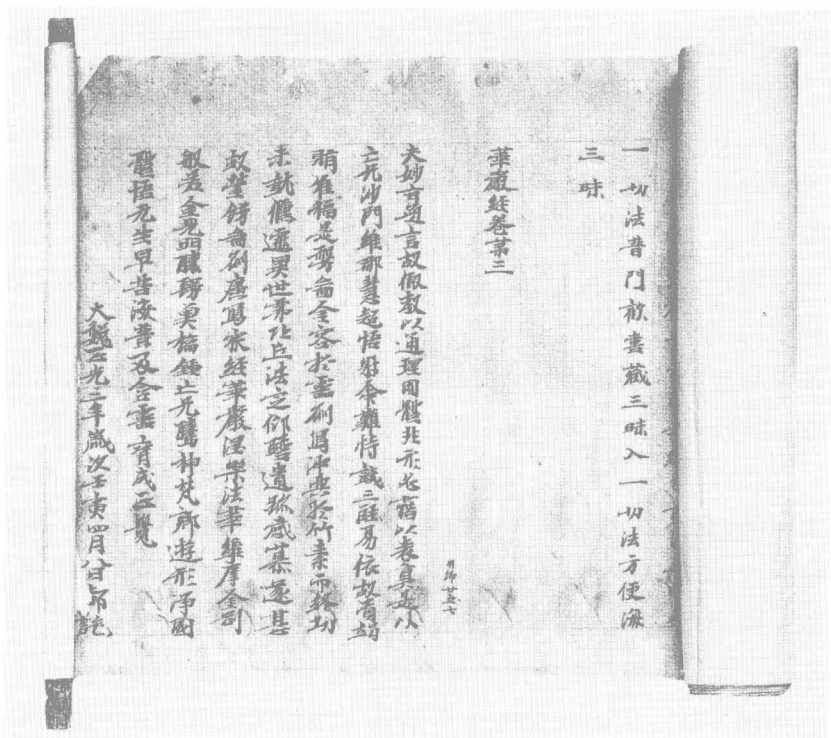 一切法普門歡喜藏三昧入一切法方便海
三昧
華嚴經卷第三
用紙廿
夫妙旨無言故假教以通理圓體非形必藉以表真是以
亡兄沙門維那慧超悟財命難恃識三聖易依故資竭
賄唯福是務圖金容於靈剎寫沖典於竹素而終功
未就倏遷異世弟比丘法定仰瞻遺跡感慕遂甚
故瑩飾圖剎廣寫眾經華嚴涅槃法華維摩金剛
般若金光明勝鬘冀福鍾亡兄騰神梵鄉遊形淨國
體悟无生早苦海普及含靈齊成正覺
大魏正光三年歲次壬寅四月八日都訖